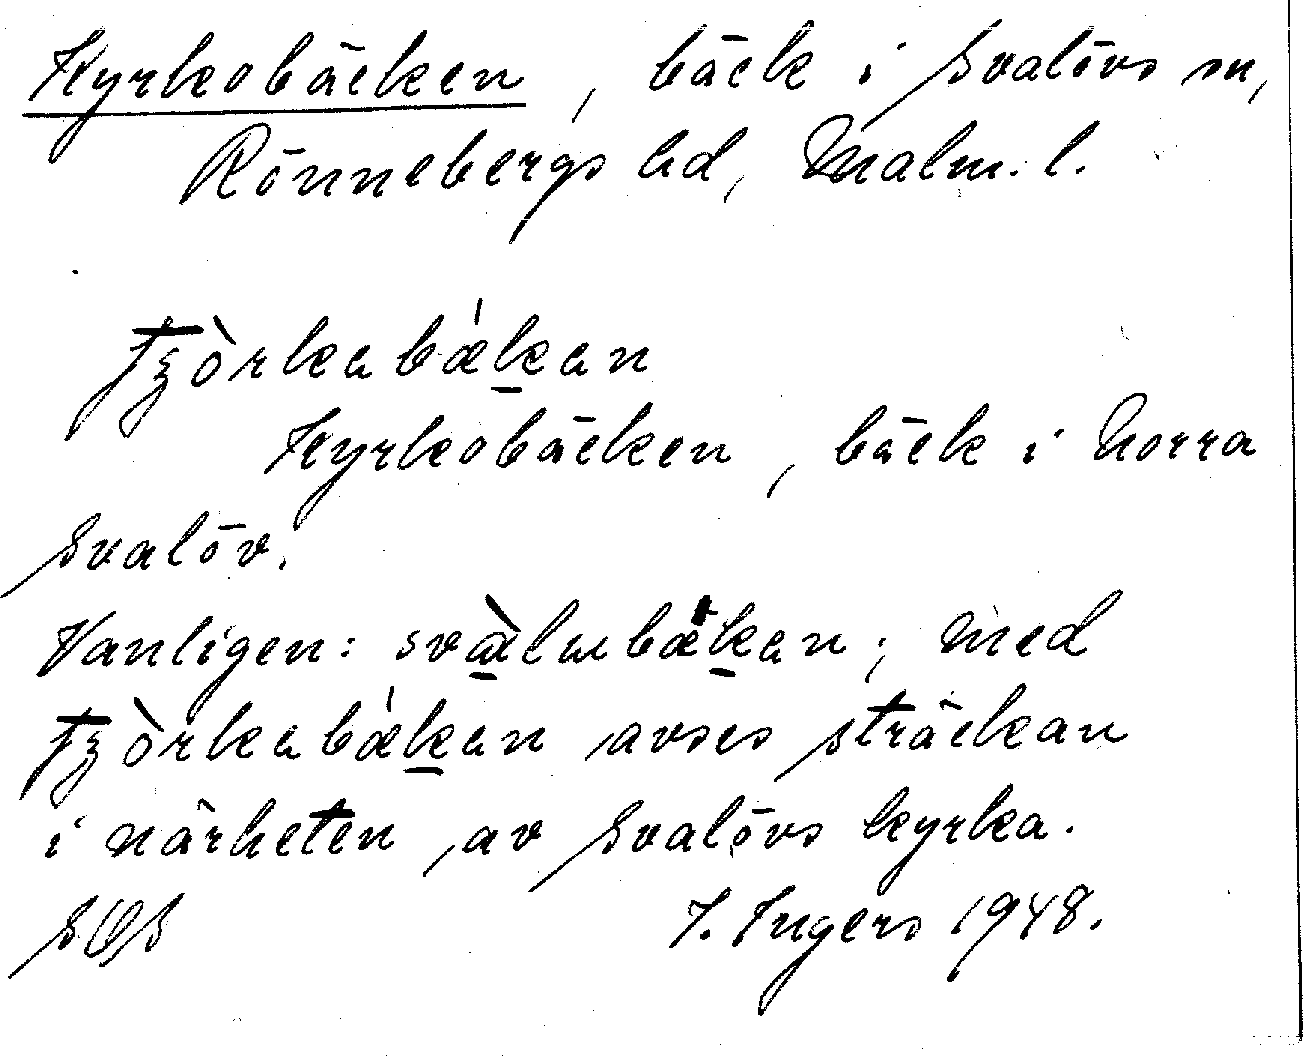 Kyrkobäcken, bäck i Svalövs sn,
Rönnebergs hd, Malm. l.
tʒòrkabǽkan
Kyrkobäcken, bäck i Norra
Svalöv.
Vanligen: med
tʒòrkabǽkan avses sträckan
i närheten av Svalövs kyrka.
I. Ingers 1948.